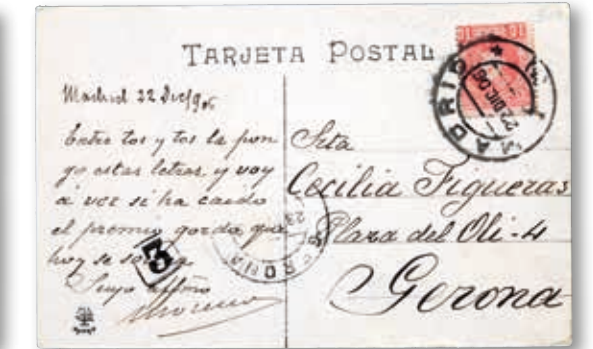 TARJETA POSTAL
Madrid 22 Dic/906
Entre tos y tos le pon
go estas letras y voy
á ver si ha caido
el premio gordo que
hoy se
Suyo
Moreno
Srta
Cecilia Figueras
Plaza del Oli-4
Gerona
MADRID
22 DIC 06
3
23